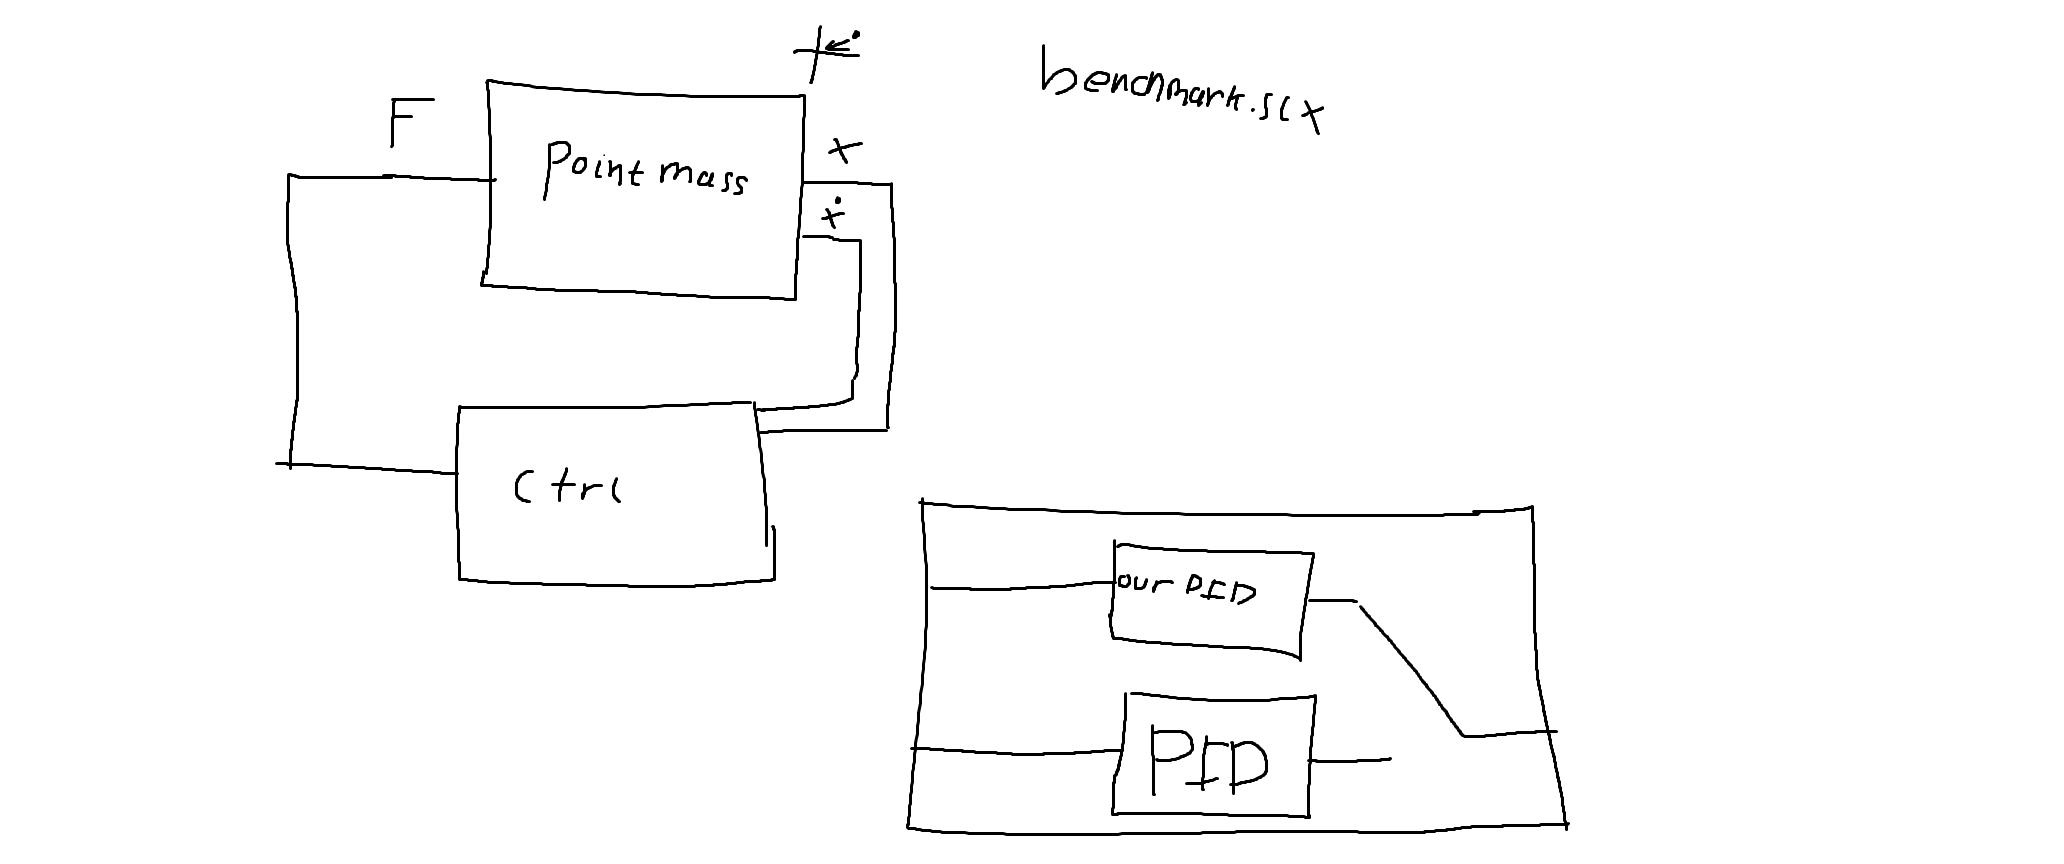 benchmark.slx
F
Point mass
x
ẋ
Ctrl
our PID
PID